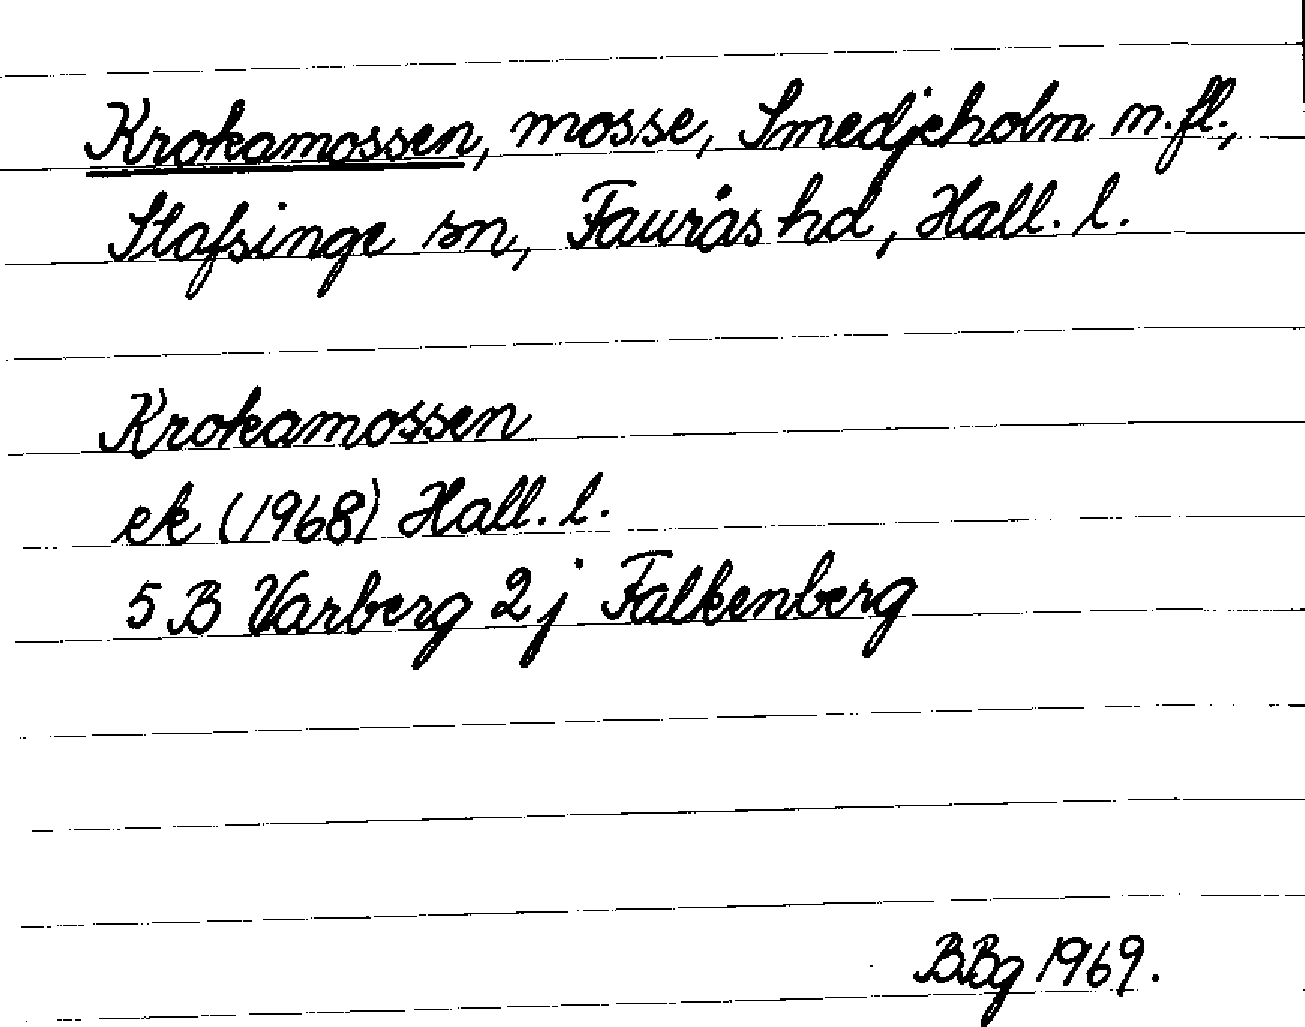 Krokamossen, mosse, Smedjeholm m.fl.,
Stafsinge sn, Faurås hd, Hall. l.
Krokamossen
ek (1968) Hall. l.
5 B Varberg 2 j Falkenberg
BBg 1969.